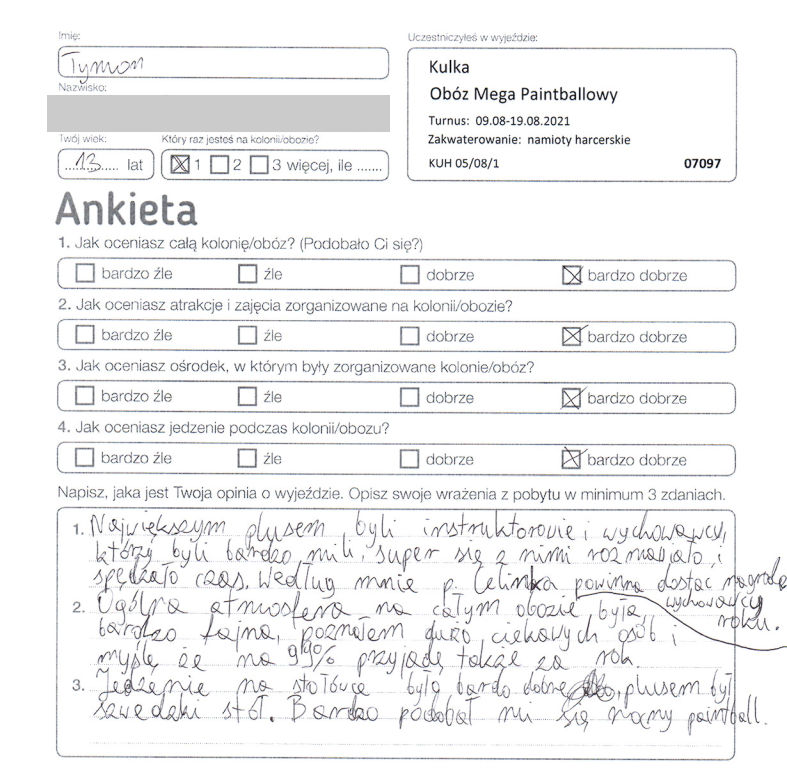 Imię:
Tymon
Uczestniczyłeś w wyjeździe:
Kulka
Obóz Mega Paintballowy
Turnus: 09.08-19.08.2021
Zakwaterowanie: namioty harcerskie
KUH 05/08/1 07097
Nazwisko:
Twój wiek: Który raz jesteś na kolonii/obozie?
13 lat 1 2 3 więcej, ile .......
Ankieta
1. Jak oceniasz całą kolonię/obóz? (Podobało Ci się?)
bardzo źle źle dobrze bardzo dobrze
2. Jak oceniasz atrakcje i zajęcia zorganizowane na kolonii/obozie?
bardzo źle źle dobrze bardzo dobrze
3. Jak oceniasz ośrodek, w którym były zorganizowane kolonie/obóz?
bardzo źle źle dobrze bardzo dobrze
4. Jak oceniasz jedzenie podczas kolonii/obozu?
bardzo źle źle dobrze bardzo dobrze
Napisz, jaka jest Twoja opinia o wyjeździe. Opisz swoje wrażenia z pobytu w minimum 3 zdaniach.
1. Największym plusem byli instruktorowie i wychowawcy,
którzy byli bardzo mili, super się z nimi rozmawiało, i
spędzało czas. Według mnie p. Celinka powinna dostać nagrodę
wychowawcy roku.
2. Ogólna atmosfera na całym obozie była
bardzo fajna, poznałem dużo ciekawych osób i
myślę że na 99% przyjadę także za rok.
3. Jedzenie na stołówce było bardo dobre, plusem był
szwedzki stół. Bardzo podobał mi się nocny paintball.